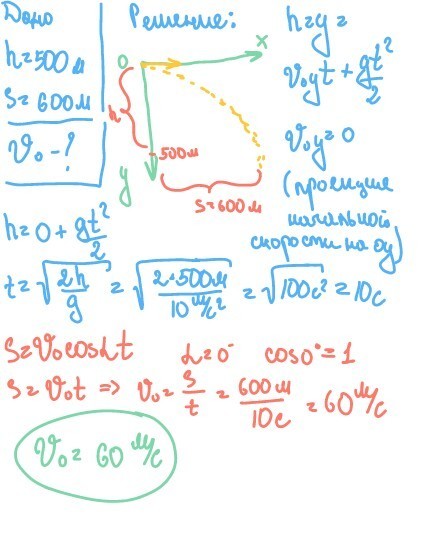 Дано
h=500м
S=600м
V₀-?
Решение:
0
x
h
500м
y
S=600м
h=y=
V₀yt + gt²/2
V₀y=0
(проекция
начальной
скорости на оу)
h=0+gt²/2
t=√(2h/g) = √(2·500м/10м/с²) = √100с² = 10с
S=V₀cosαt α=0° cos0°=1
S=V₀t ⇒ V₀=S/t = 600м/10с = 60м/с
V₀ = 60 м/с